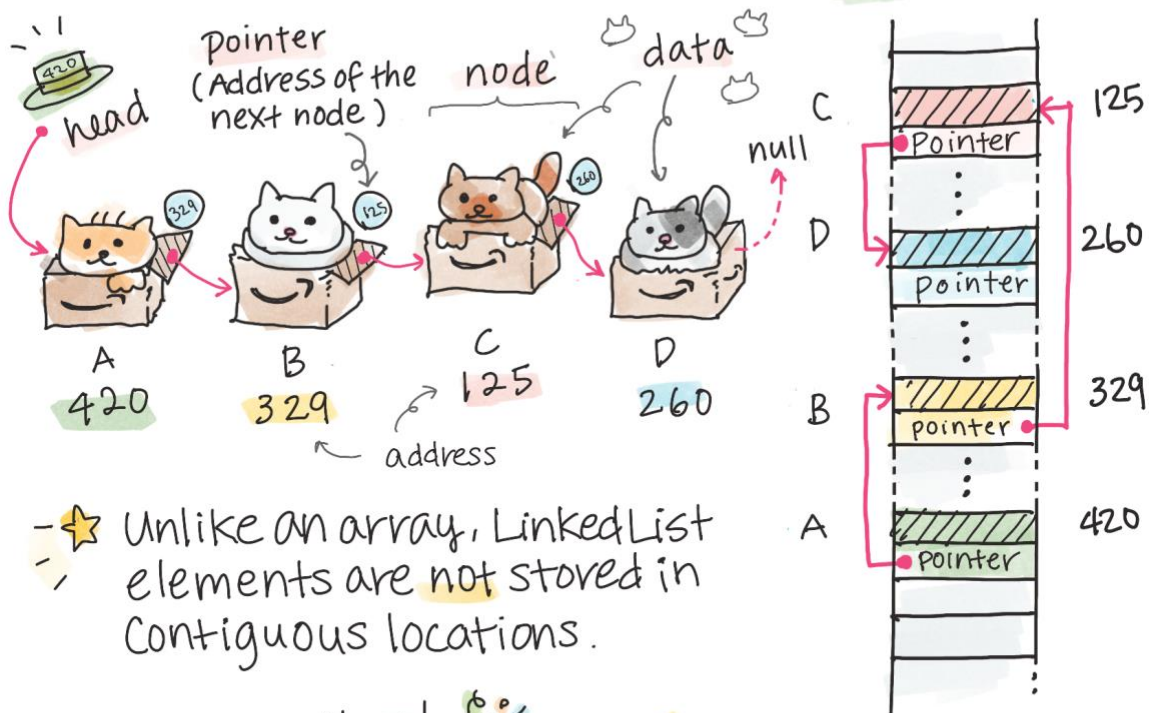 420
head
pointer
(Address of the
next node)
node
data
null
329
125
260
A
420
B
329
C
125
D
260
address
Unlike an array, LinkedList
elements are not stored in
Contiguous locations.
C
125
pointer
D
260
pointer
B
329
pointer
A
420
pointer